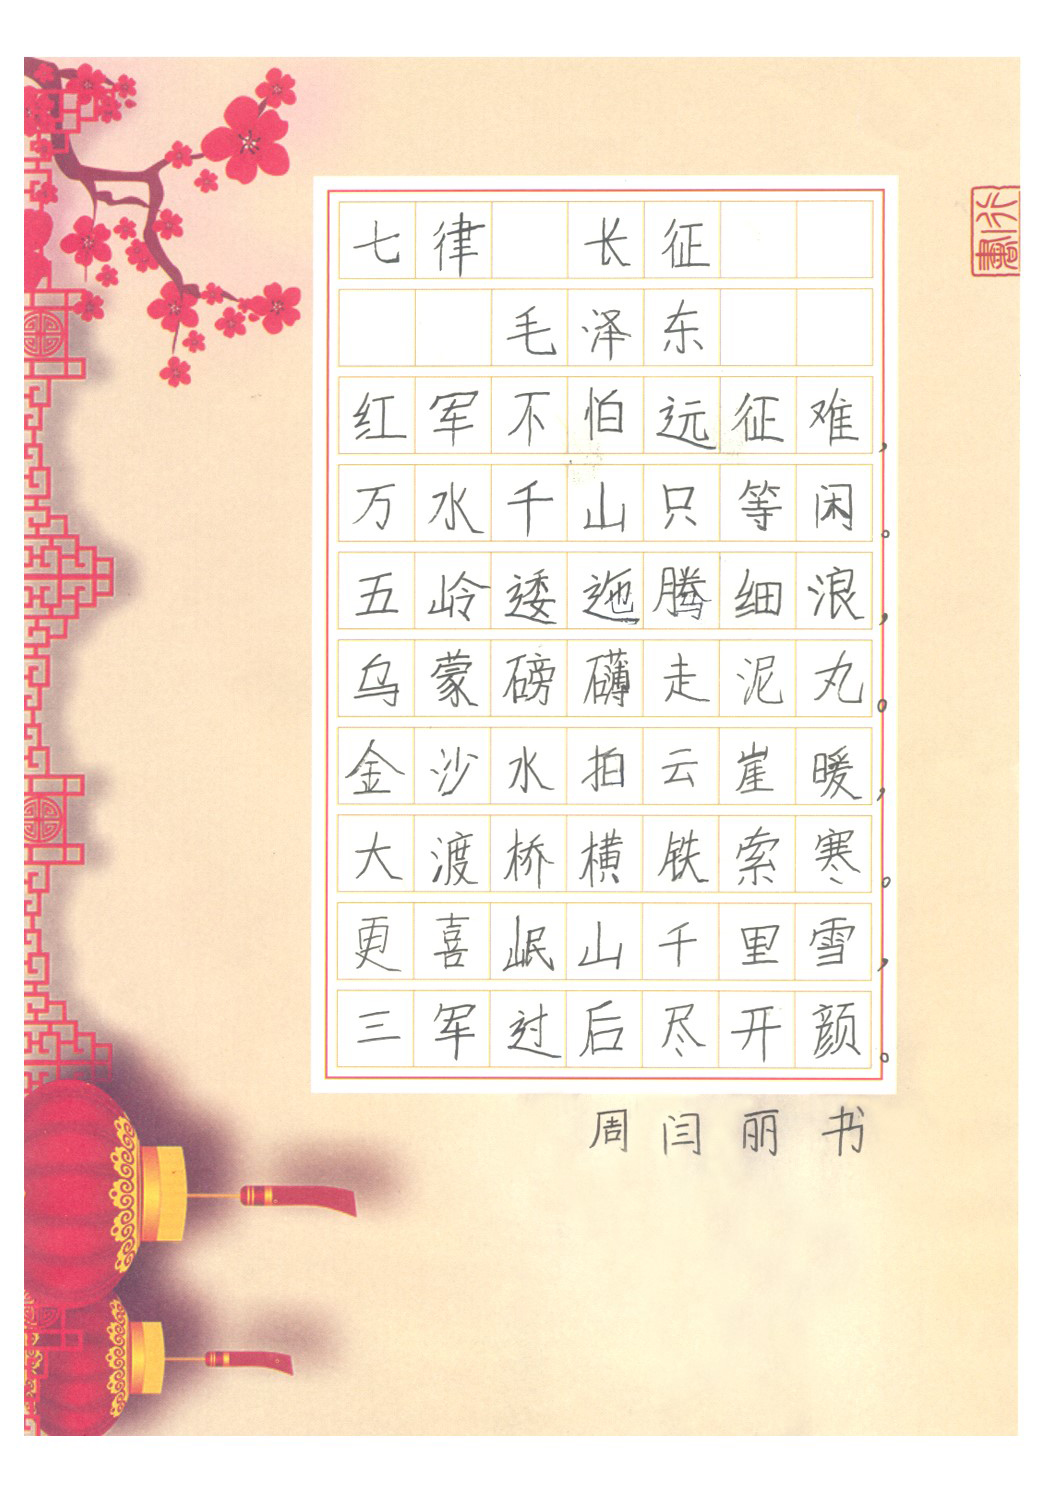 七律 长征
毛泽东
红军不怕远征难，
万水千山只等闲。
五岭逶迤腾细浪，
乌蒙磅礴走泥丸。
金沙水拍云崖暖，
大渡桥横铁索寒。
更喜岷山千里雪，
三军过后尽开颜。
周闫丽 书